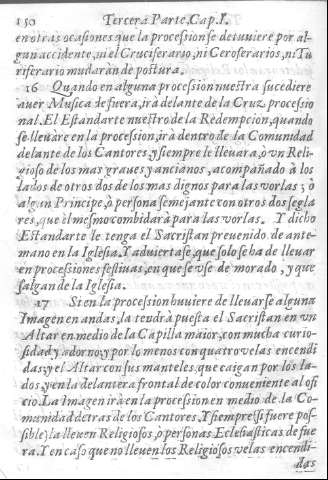 150 Tercera Parte, Cap. I.
en otras ocasiones que la procession se detuuiere por al-
gun accidente, ni el Cruciferario, ni Ceroferarios, ni Tu
riferario mudaràn de postura.
16 Quando en alguna procession nuestra sucediere
auer Musica de fuera, irà delante de la Cruz processio
nal. El Estandarte nuestro de la Redempcion, quando
se lleuàre en la procession, irà dentro de la Comunidad
delante de los Cantores, y siempre le lleuara, ò vn Reli-
gioso de los mas graues y ancianos, acompañado à los
lados de otros dos de los mas dignos para las vorlas; ò
algun Principe, ò persona semejante con otros dos segla
res, que èl mesmo combidarà para las vorlas. Y dicho
Estandarte le tenga el Sacristan preuenido de ante-
mano en la Iglesia. Y aduiertase, que solo se ha de lleuar
en processiones festiuas, en que se vse de morado, y que
salgan de la Iglesia.
17 Si en la procession huuiere de lleuarse alguna
Imagen en andas, la tendrà puesta el Sacristan en vn
Altar en medio de la Capilla maior, con mucha curio-
sidad, y adorno, y por lo menos con quatro velas encendi
das, y el Altar con sus manteles, que caigan por los la-
dos, y en la delantera frontal de color conueniente al ofi
cio. La Imagen irà en la procession en medio de la Co-
munidad detras de los Cantores. Y siempre (si fuere pos-
sible) la lleuen Religiosos, ò personas Eclesiasticas de fue
ra. Y en caso que no lleuen los Religiosos velas encendi-
das